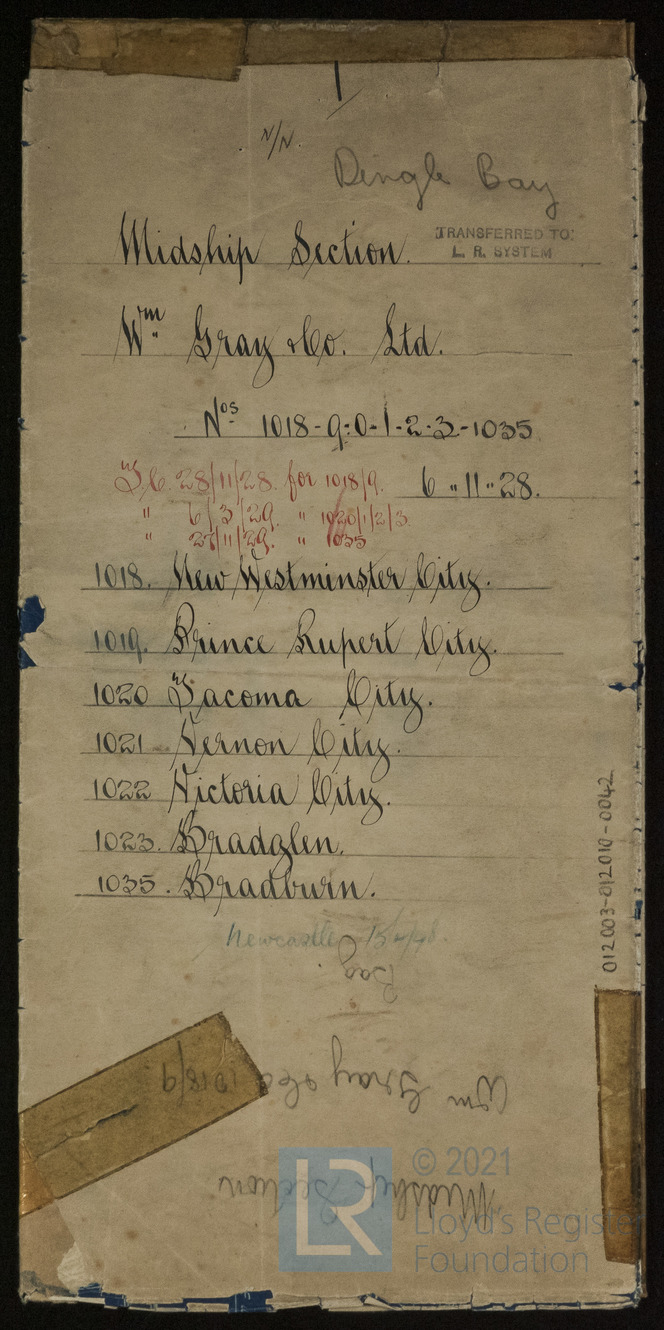 N/N.
Dingle Bay
TRANSFERRED TO:
L. R. SYSTEM
Midship Section.
Wm Gray & Co. Ltd.
Nos 1018-9-0-1-2-3-1035
T.C. 28/11/28. for 1018/9.
6 " 11 " 28.
" 6/3/29. " 1020/1/2/3
" 27/11/29. " 1035
1018. New Westminster City.
1019. Prince Rupert City.
1020 Tacoma City.
1021 Vernon City.
1022 Victoria City.
1023. Bradglen.
1035. Bradburn.
Newcastle
Bag.
Wm Gray & Co 1018/9
Midship Section
012003-012010-0042
LR
© 2021
Lloyd's Register
Foundation